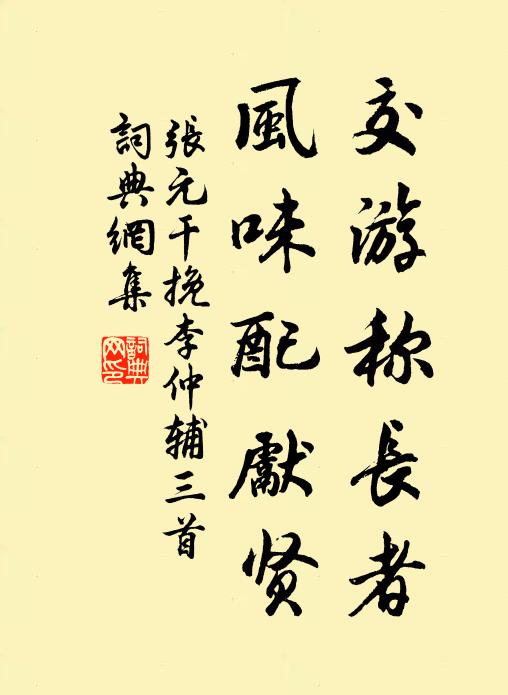 交游称長者
風味配獻贤
張元干挽李仲辅三首
詞典網集
詞典网印